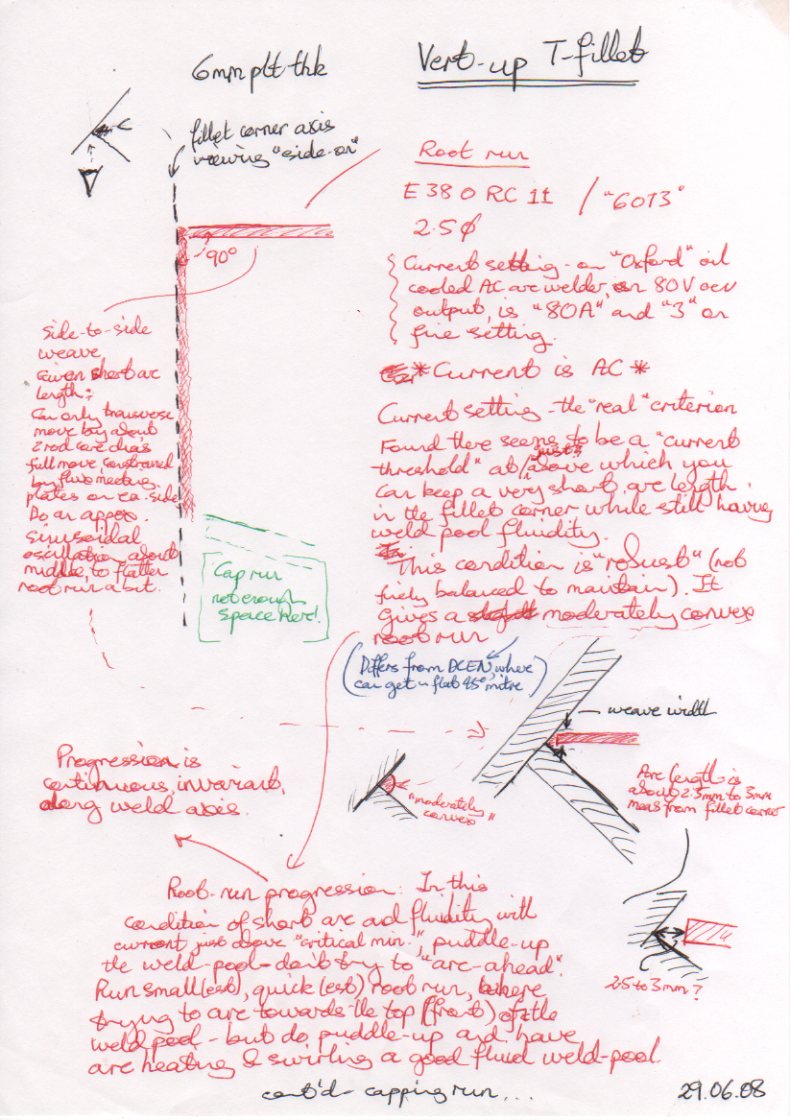 6mm plt thk
Vert-up T-fillet
fillet corner axis
viewing "side-on"
90°
Root run
E 38 0 RC 11 / "6013"
2.5 ϕ
Current setting - on "Oxford" oil
cooled AC arc welder, on 80V ocv
output, is "80A" and "3" on
fine setting.
* Current is AC *
Current setting - the "real" criterion
Found there seems to be a "current
threshold" at / "just" above which you
can keep a very short arc length
in the fillet corner while still having
weld pool fluidity.
This condition is "robust" (not
finely balanced to maintain). It
gives a moderately convex
root run
side-to-side
weave
Given short arc
length:
Can only transverse
move by about
2 rod core dias
full move constrained
by flux meeting
plates on ea. side
Do an approx.
sinusoidal
oscillation about
middle, to flatten
root run a bit.
Cap run
not enough
space here!
(Differs from DCEN, where
can get a flat 45° mitre)
weave width
"moderately"
convex
Arc length is
about 2.5mm to 3mm
meas from fillet corner
Progression is
continuous, invariant,
along weld axis.
2.5 to 3mm?
Root-run progression: In this
condition of short arc and fluidity with
current just above "critical min.", puddle-up
the weld-pool - don't try to "arc-ahead".
Run small(est), quick(est) root run, where
trying to arc towards the top (front) of the
weld pool - but do, puddle-up and have
arc heating & swirling a good fluid weld-pool.
cont'd - capping run ...
29.06.08